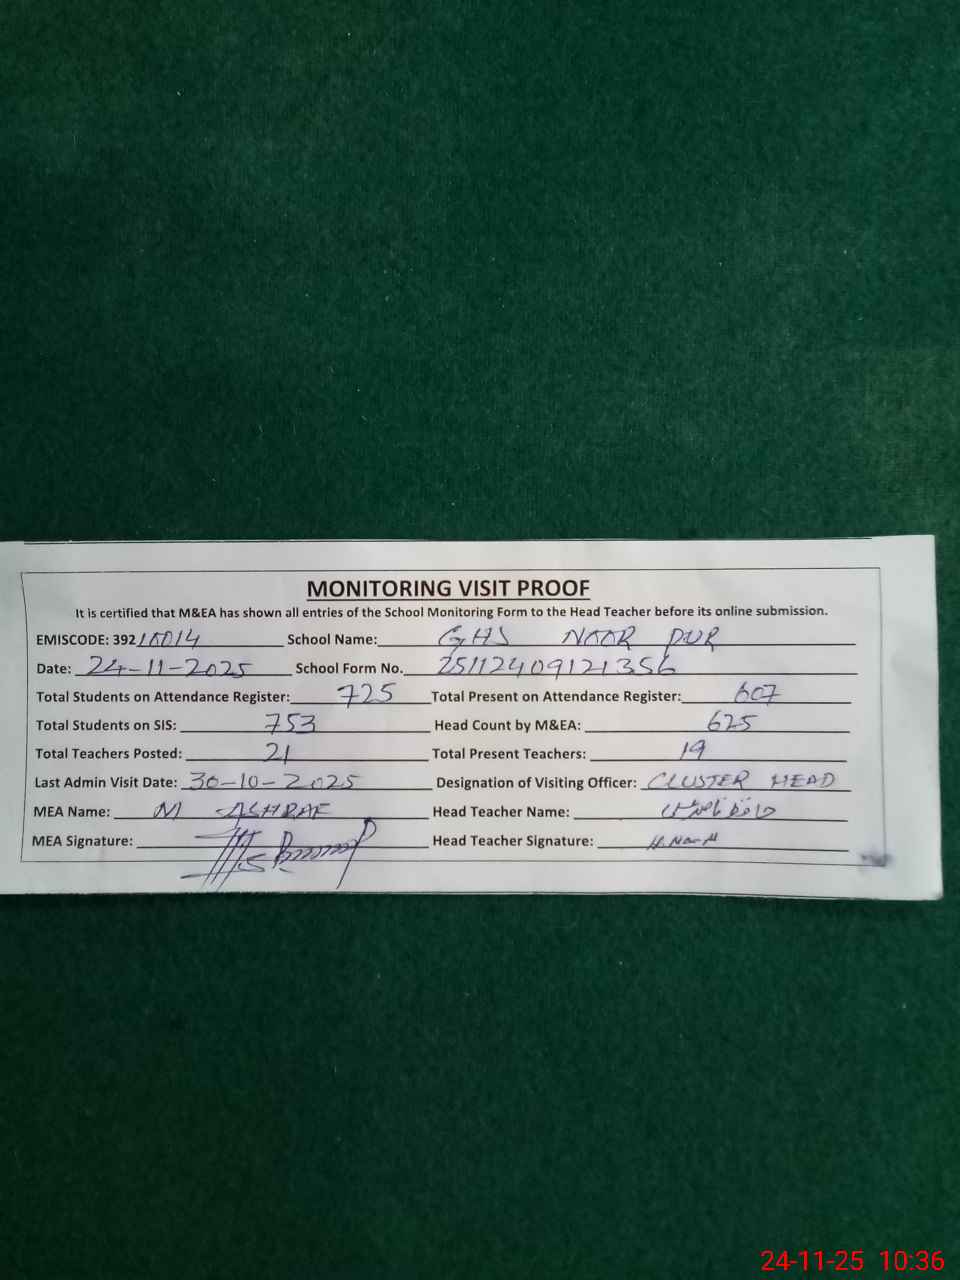 MONITORING VISIT PROOF
It is certified that M&EA has shown all entries of the School Monitoring Form to the Head Teacher before its online submission.
EMISCODE: 39210014 School Name: GHS NOOR PUR
Date: 24-11-2025 School Form No. 25112409121356
Total Students on Attendance Register: 725 Total Present on Attendance Register: 607
Total Students on SIS: 753 Head Count by M&EA: 625
Total Teachers Posted: 21 Total Present Teachers: 19
Last Admin Visit Date: 30-10-2025 Designation of Visiting Officer: CLUSTER HEAD
MEA Name: M ASHRAF Head Teacher Name: حافظ
MEA Signature: Head Teacher Signature:
24-11-25 10:36